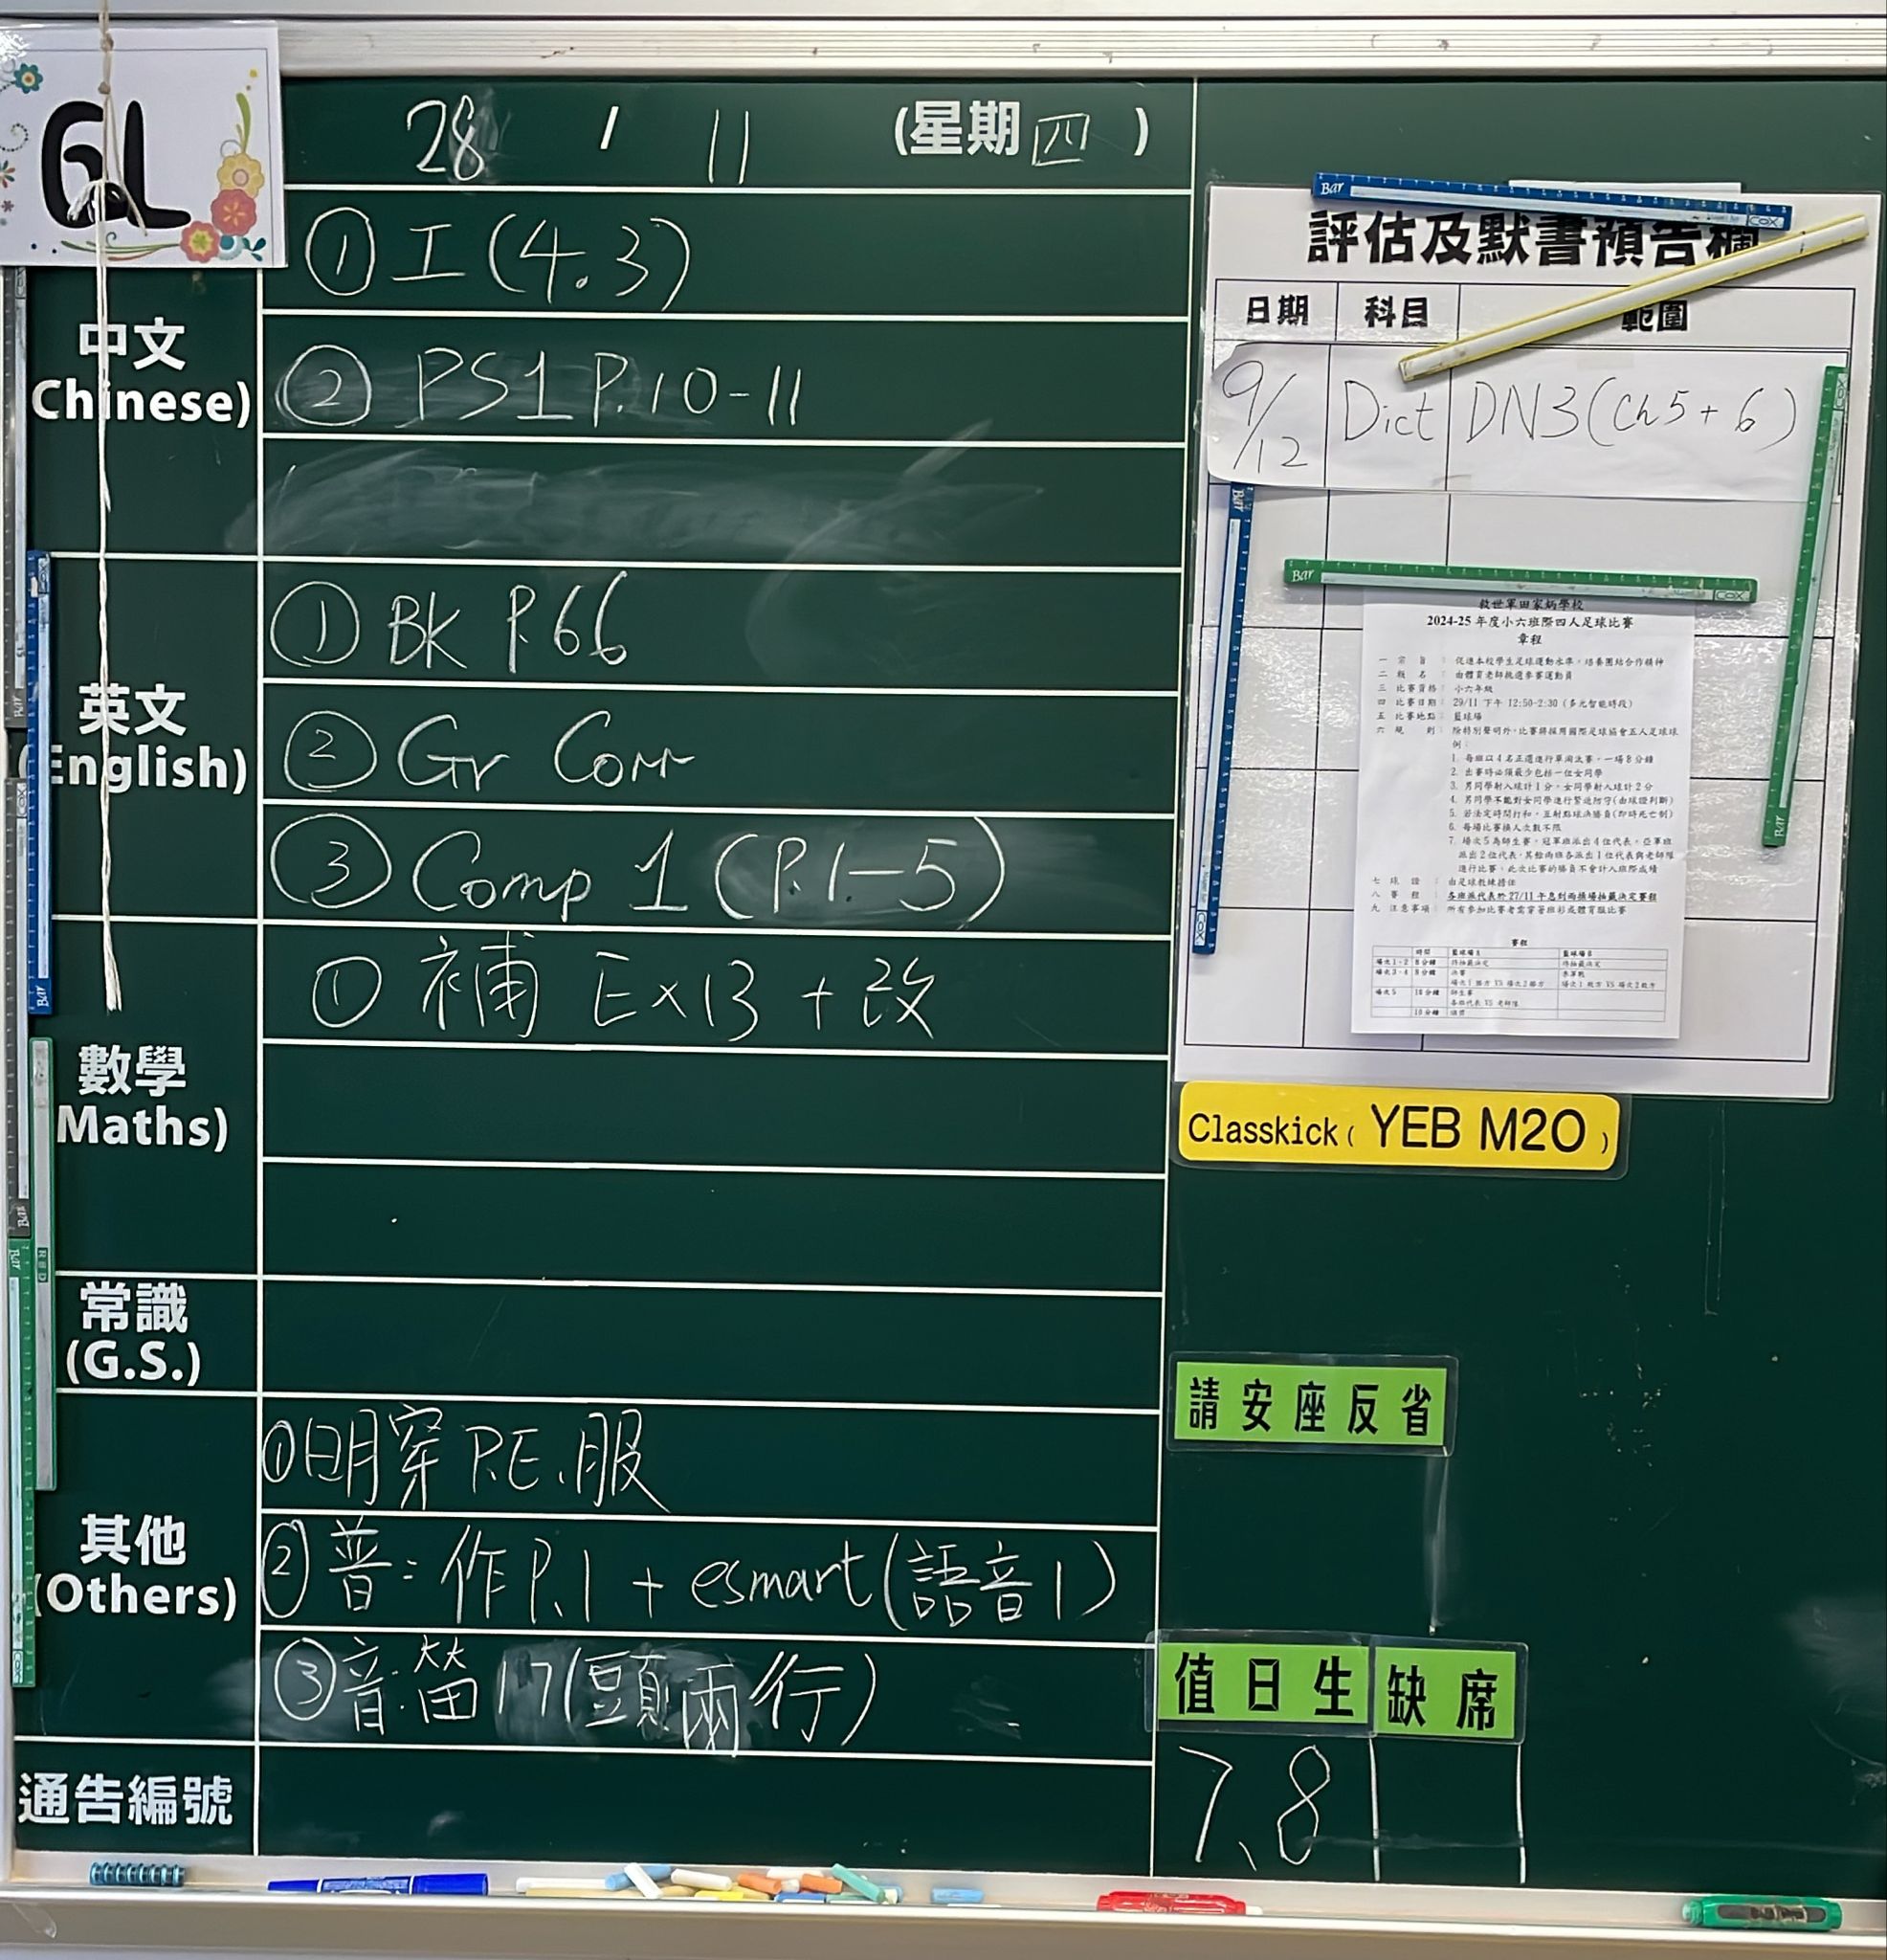 6L
28 / 11 (星期四)
中文
Chinese)
① 工 (4.3)
② PS1 P.10-11
英文
(English)
① BK P.66
② Gr Corr
③ Comp 1 (P.1-5)
數學
Maths)
① 補 Ex13 + 改
常識
(G.S.)
其他
(Others)
①明穿P.E.服
②普：作P.1 + esmart(語音1)
③音：笛17(頭兩行)
通告編號
評估及默書預告欄
日期 科目 範圍
9/12 Dict DN3(Ch5+6)
救世軍田家炳學校
2024-25 年度小六班際四人足球比賽
章程
一 宗 旨 ： 促進本校學生足球運動水準，培養團結合作精神
二 報 名 ： 由體育老師挑選參賽運動員
三 比賽資格 ： 小六年級
四 比賽日期 ： 29/11 下午 12:50-2:30 (多元智能時段)
五 比賽地點 ： 籃球場
六 規 則 ： 除特別聲明外，比賽將採用國際足球協會五人足球球
例：
1. 每班以4名正選進行單淘汰賽，一場8分鐘
2. 出賽時必須最少包括一位女同學
3. 男同學射入球計1分，女同學射入球計2分
4. 男同學不能對女同學進行緊迫防守(由球證判斷)
5. 若法定時間打和，互射點球決勝負(即時死亡制)
6. 每場比賽換人次數不限
7. 場次5為師生賽，冠軍班派出4位代表，亞軍班
派出2位代表，其餘兩班各派出1位代表與老師隊
進行比賽，此次比賽的勝負不會計入班際成績
七 球 證 ： 由足球教練擔任
八 賽 程 ： 各班派代表於27/11年息到雨操場抽籤決定賽程
九 注意事項 ： 所有參加比賽者需穿著班衫或體育服比賽
賽程
時間 籃球場A 籃球場B
場次1-2 8分鐘 待抽籤決定 待抽籤決定
場次3-4 8分鐘 決賽 季軍戰
場次1勝方 VS 場次2勝方 場次1敗方 VS 場次2敗方
場次5 10分鐘 師生賽
各班代表 VS 老師隊
10分鐘
Classkick( YEB M2O )
請安座反省
值日生 缺席
7、8
Bar
COX